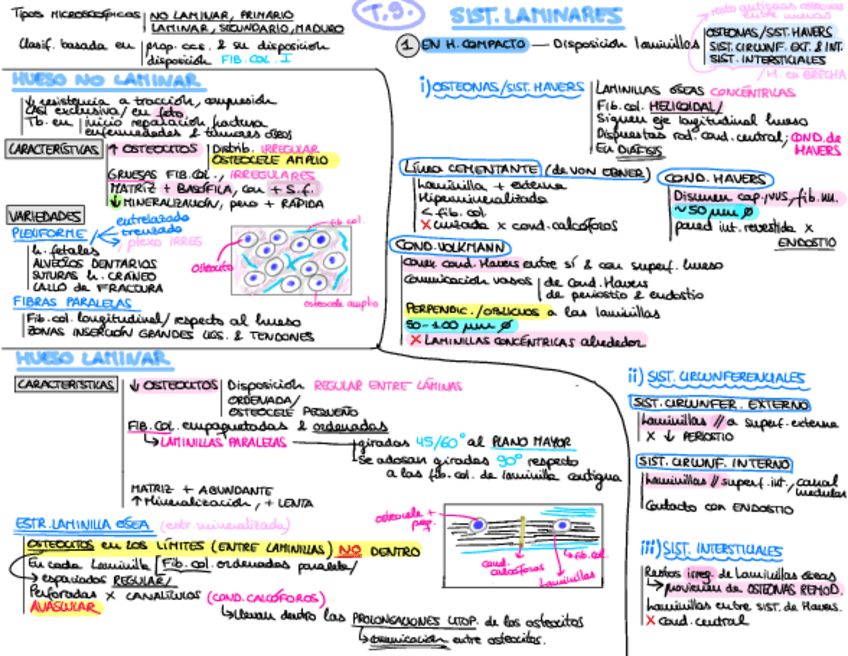 T.9.
TIPOS MICROSCÓPICOS | NO LAMINAR, PRIMARIO
LAMINAR, SECUNDARIO, MADURO
Clasif. basada en | prop. ccs. & su disposición
disposición FIB. COL. I
HUESO NO LAMINAR
↓ resistencia a tracción, compresión
Casi exclusiva/ en feto
Tb. en | inicio reparación fractura
enfermedades & tumores óseos
CARACTERÍSTICAS | ↑ OSTEOCITOS | Distrib. IRREGULAR
OSTEOCELE AMPLIO
GRUESAS FIB. COL., IRREGULARES
MATRIZ + BASÓFILA, con + S.f.
↓ MINERALIZACIÓN, pero + RÁPIDA
VARIEDADES
PLEXIFORME / entrelazado
trenzado
plexo IRREG
h. fetales
ALVEOLOS DENTARIOS
SUTURAS h. CRÁNEO
CALLO de FRACTURA
fib col.
Osteocito
osteocele amplio
FIBRAS PARALELAS
Fib. col. longitudinal/ respecto al hueso
ZONAS INSERCIÓN GRANDES LIGS. & TENDONES
HUESO LAMINAR
CARACTERÍSTICAS | ↓ OSTEOCITOS | Disposición REGULAR ENTRE LÁMINAS
ORDENADA/
OSTEOCELE PEQUEÑO
FIB. COL. empaquetadas & ordenadas
↳ LAMINILLAS PARALELAS → giradas 45/60° al PLANO MAYOR
Se adosan giradas 90° respecto
a las fib. col. de laminilla contigua
MATRIZ + ABUNDANTE
↑ Mineralización, + LENTA
ESTR. LAMINILLA ÓSEA (estr. mineralizada)
OSTEOCITOS en LOS LÍMITES (ENTRE LAMINILLAS) NO DENTRO
En cada Laminilla | Fib. col. ordenadas paralela/
→ espaciados REGULAR/
Perforadas x CANALÍCULOS (COND. CALCÓFOROS)
AVASCULAR
↳ Llevan dentro las PROLONGACIONES CITOP. de los osteocitos
↳ comunicación entre osteocitos.
osteocele + peq.
cond. calcóforos
fib. col.
Laminillas
SIST. LAMINARES
resto antiguas osteonas
entre nuevas
1 EN H. COMPACTO — Disposición laminillas | OSTEONAS/SIST. HAVERS
SIST. CIRCUNF. EXT. & INT.
SIST. INTERSTICIALES
/ H. en BRECHA
i) OSTEONAS/SIST. HAVERS | LAMINILLAS ÓSEAS CONCÉNTRICAS
Fib. col. HELICOIDAL/
Siguen eje longitudinal hueso
Dispuestas rod. cond. central; COND. de
HAVERS
En DIÁFISIS
Línea CEMENTANTE (de VON EBNER)
Laminilla + externa
Hipermineralizada
< fib. col.
X cruzada x cond. calcóforos
COND. HAVERS
Discurren cap., VVS, fib. nn.
~50 μm ∅
pared int. revestida x
ENDOSTIO
COND. VOLKMANN
Conex cond. Havers entre sí & con superf. hueso
Comunicación vasos | de cond. Havers
de periostio & endostio
PERPENDIC./OBLICUOS a las laminillas
50-100 μm ∅
X LAMINILLAS CONCÉNTRICAS alrededor
ii) SIST. CIRCUNFERENCIALES
SIST. CIRCUNFER. EXTERNO
Laminillas // a superf. externa
X ↓ PERIOSTIO
SIST. CIRCUNF. INTERNO
Laminillas // superf. int., canal
medular
Contacto con ENDOSTIO
iii) SIST. INTERSTICIALES
Restos irreg. de laminillas óseas
↳ provienen de OSTEONAS REMOD.
Laminillas entre SIST. de Havers.
X cond. central